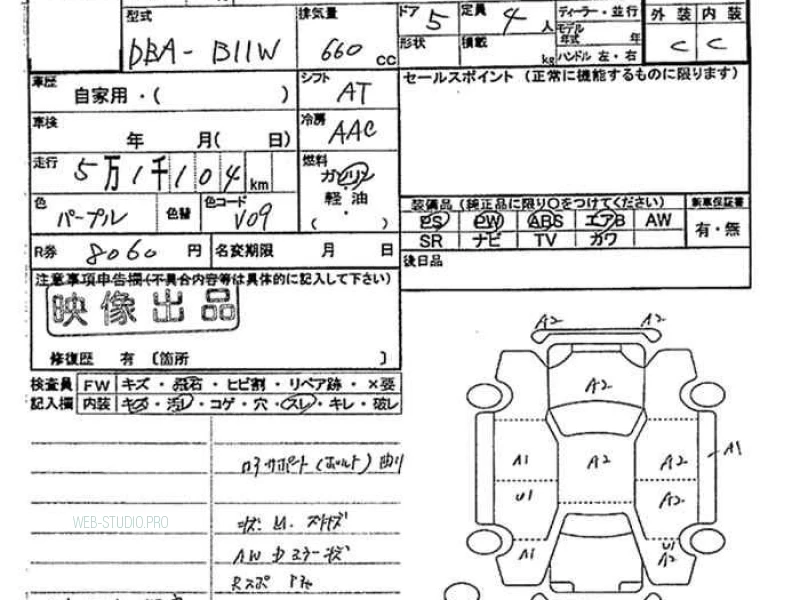 型式 排気量 ドア 5 定員 4 人 ディーラー・並行 外装 内装
DBA-B11W 660 cc 形状 積載 kg モデル年式 年 ハンドル 左・右 C C
車歴 自家用・( ) シフト AT セールスポイント (正常に機能するものに限ります)
車検 年 月( 日) 冷房 AAC
走行 5万1千104 km 燃料 ガソリン・軽油 ( )
色 パープル 色替 色コード V09 装備品 (純正品に限り○をつけてください) 新車保証書
PS PW ABS エアB AW 有・無
SR ナビ TV カワ
R券 8060 円 名変期限 月 日 後日品
注意事項申告欄(不具合内容等は具体的に記入して下さい)
映像出品
修復歴 有 〔箇所 〕
検査員 FW キズ・飛石・ヒビ割・リペア跡・×要
記入欄 内装 キズ・汚レ・コゲ・穴・スレ・キレ・破レ
A2 A2
A2
コアサポート(ボルト)曲り
A1 A2 A2 A1
U1 A2
WEB-STUDIO.PRO
A1 U1
A2